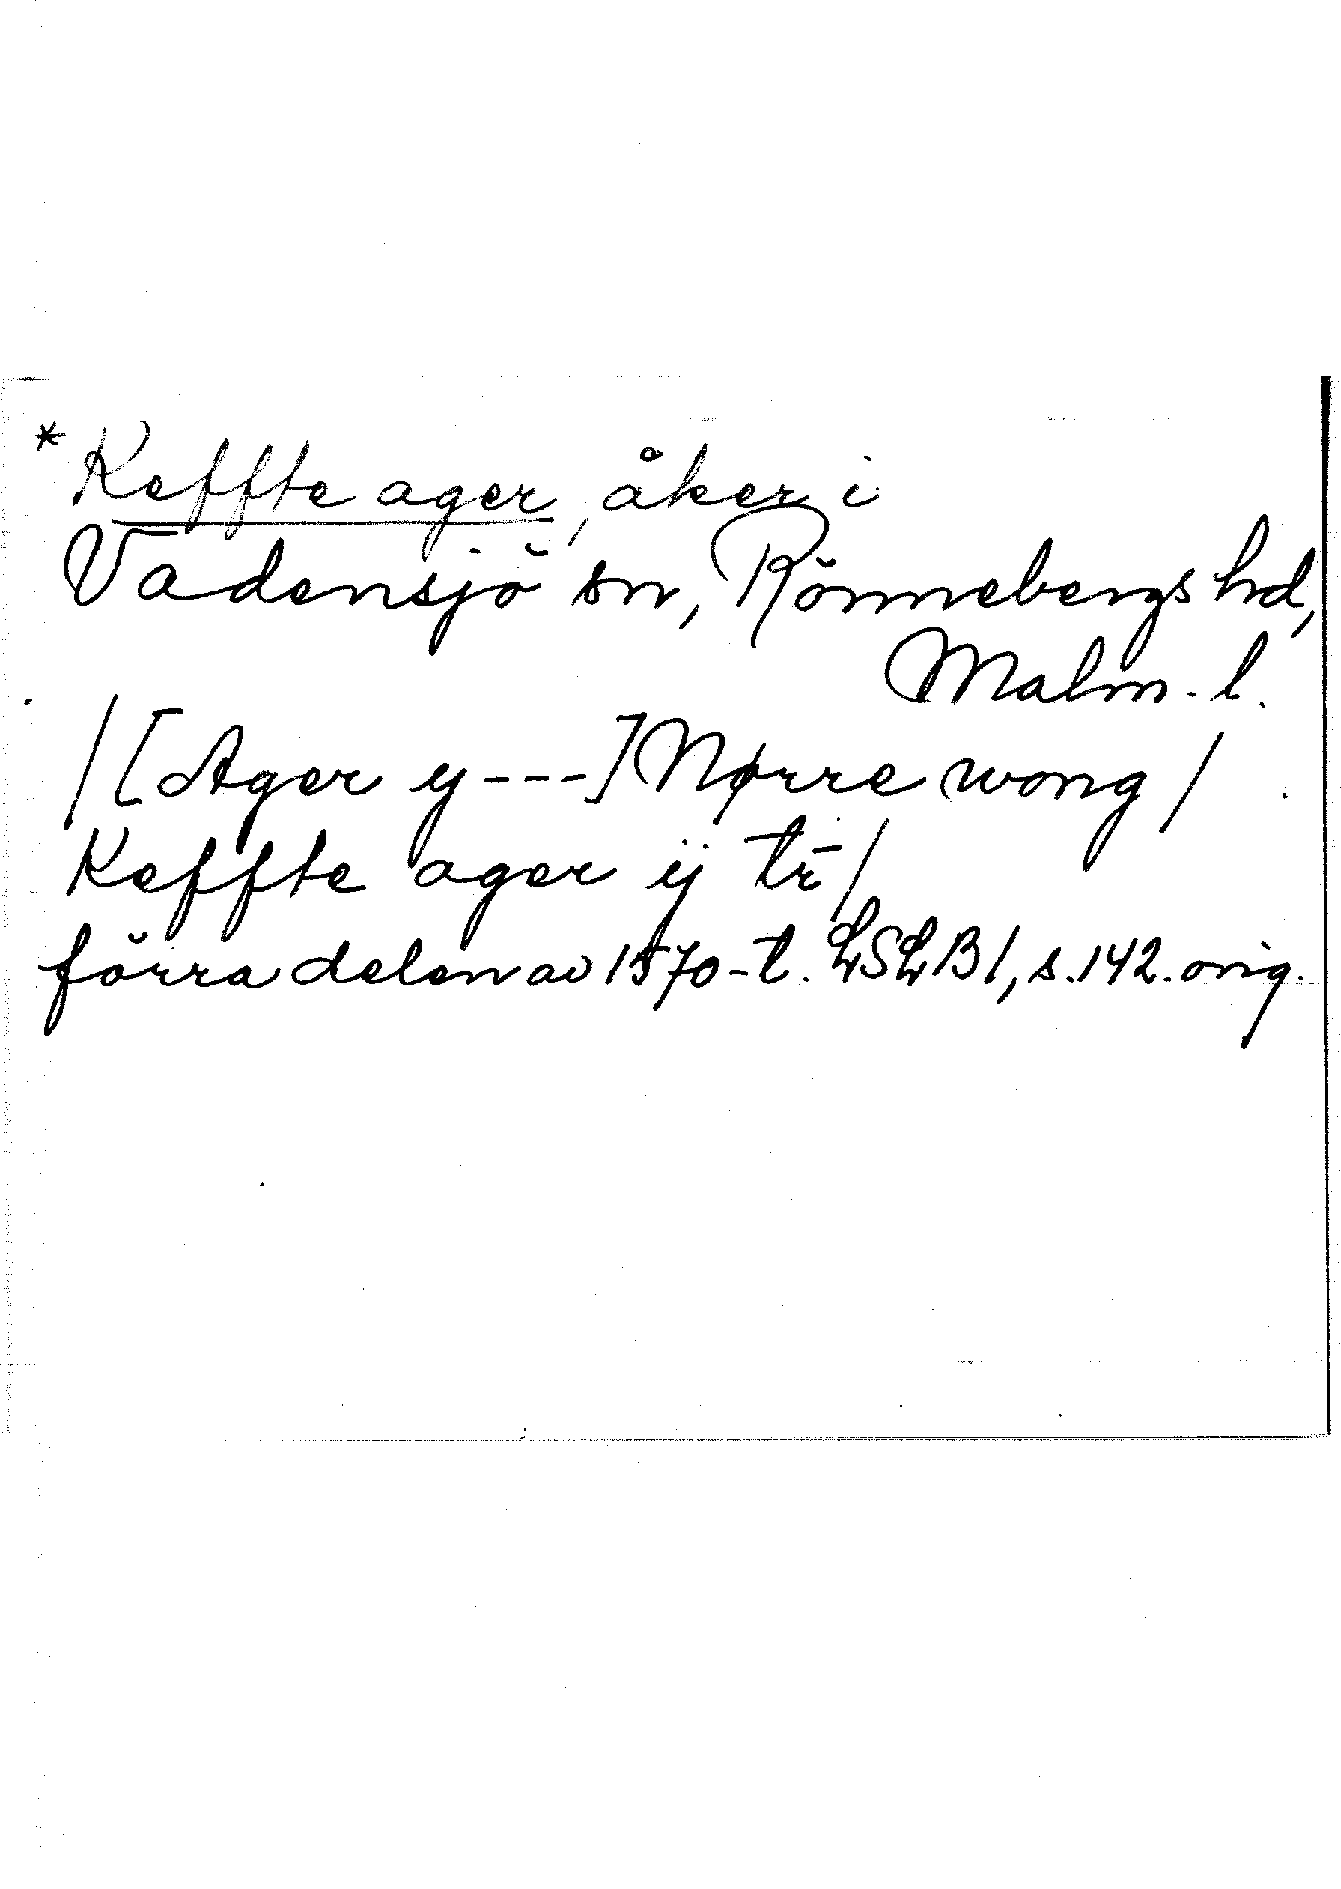 *Keffte ager, åker i
Vadensjö sn, Rönnebergs hd,
Malm. l.
/[Ager y---] Nørre wong /
Keffte ager ij tr̄ /
förra delen av 1570-t. LSLB1, s.142. orig.